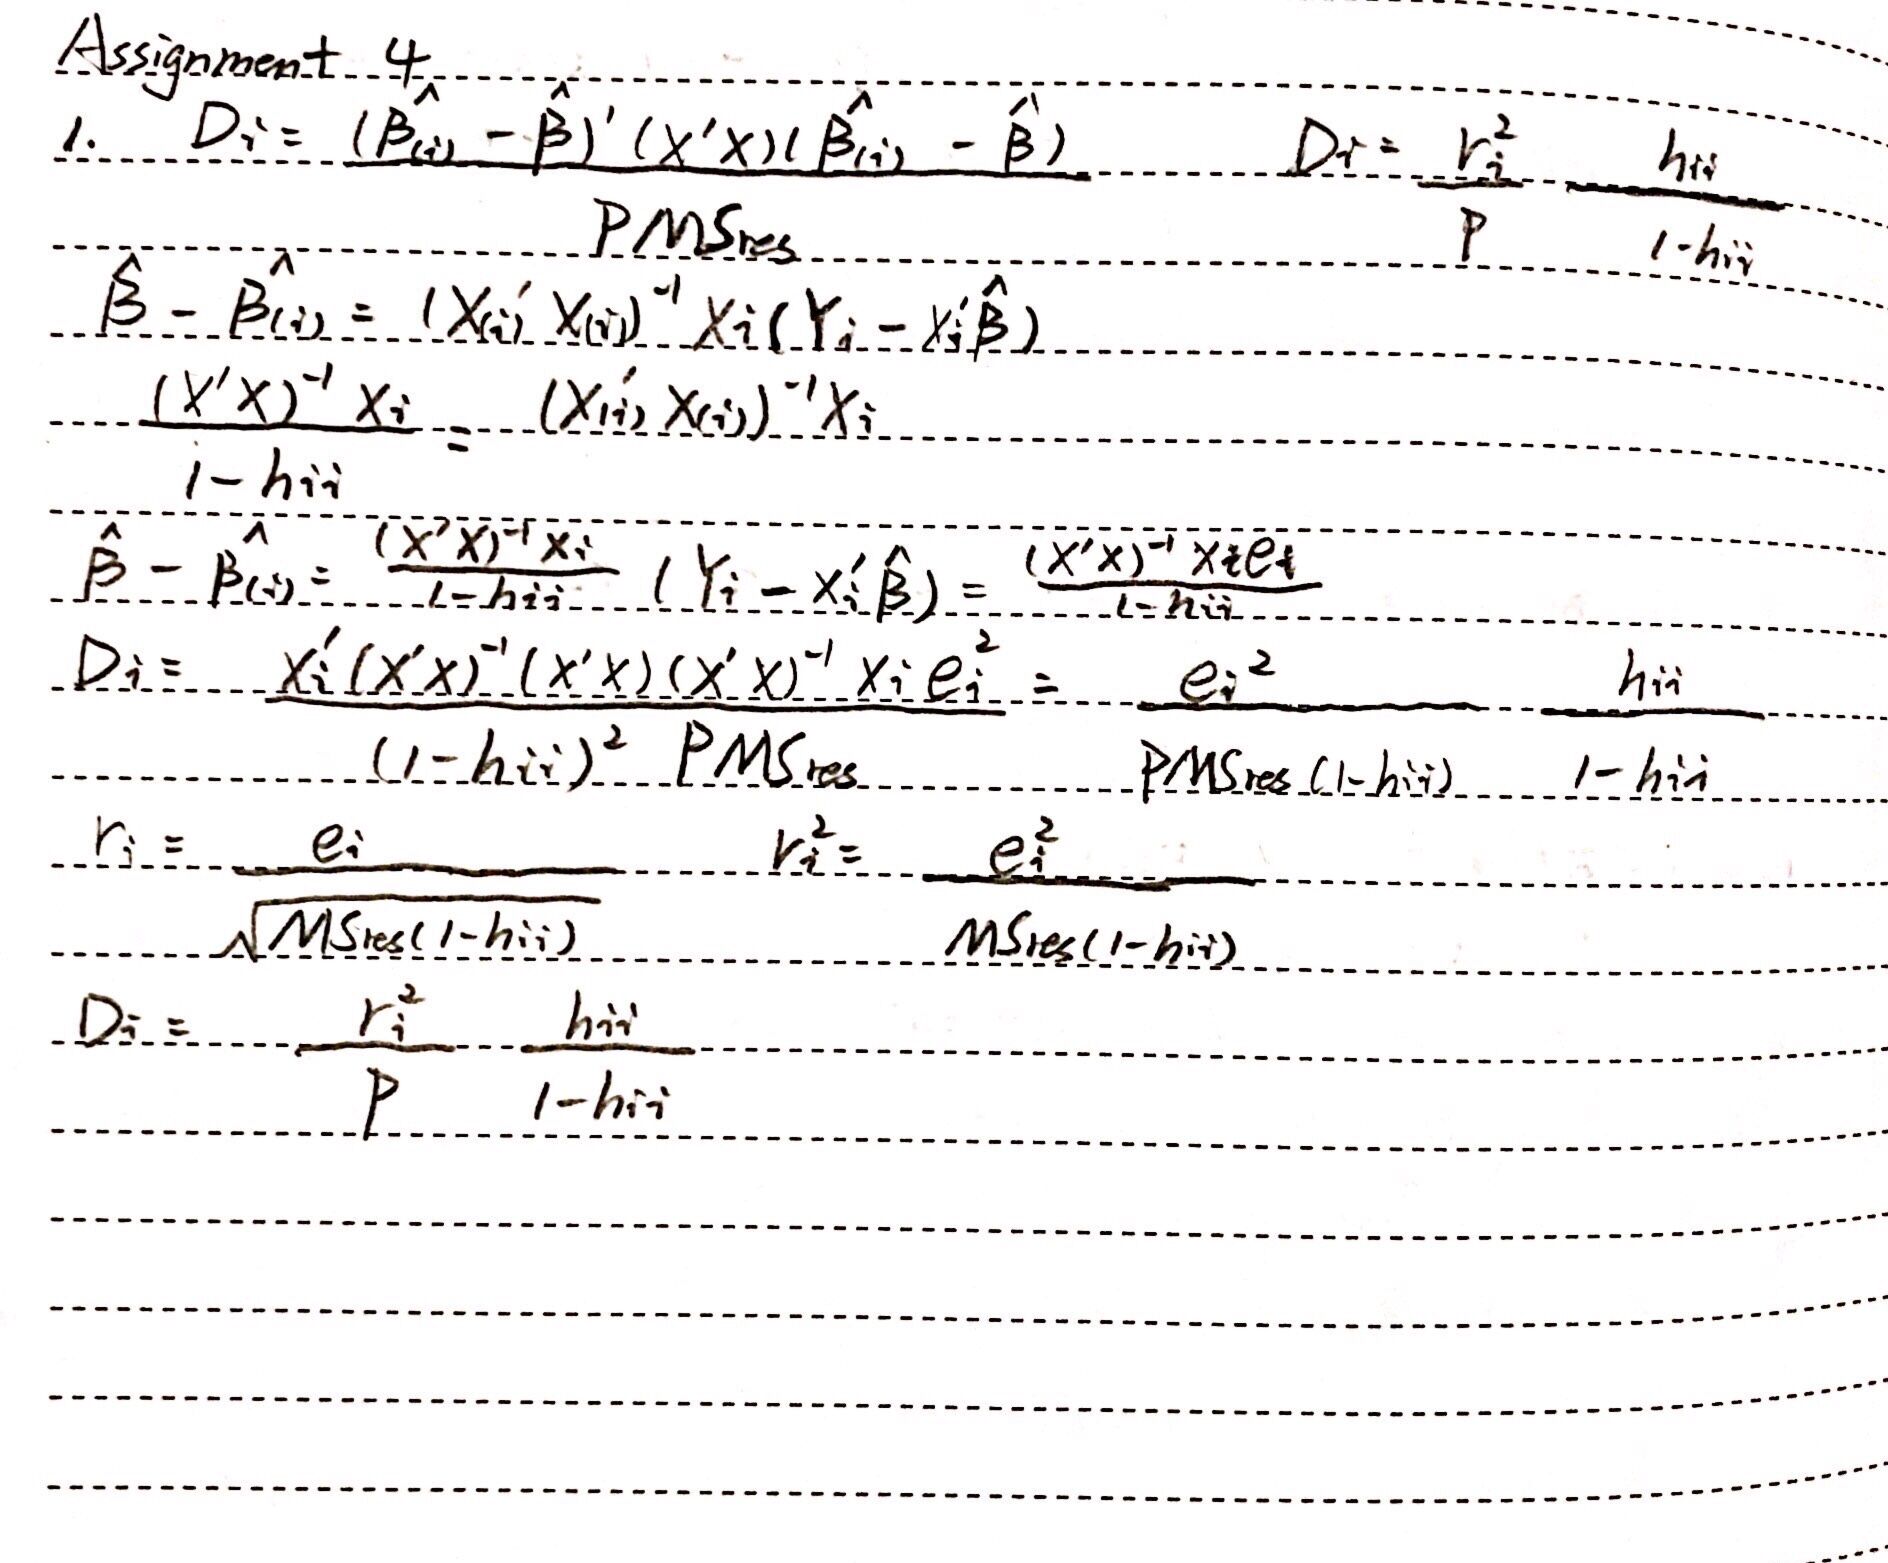 Assignment 4
1. Di = (β̂(i) - β̂)'(X'X)(β̂(i) - β̂) / PMSres    Di = ri² / P · hii / 1-hii
β̂ - β̂(i) = (X(i)' X(i))⁻¹ Xi (Yi - Xi'β̂)
(X'X)⁻¹ Xi / 1-hii = (X(i)' X(i))⁻¹ Xi
β̂ - β̂(i) = (X'X)⁻¹ Xi / 1-hii (Yi - Xi'β̂) = (X'X)⁻¹ Xi ei / 1-hii
Di = Xi'(X'X)⁻¹(X'X)(X'X)⁻¹ Xi ei² / (1-hii)² PMSres = ei² / PMSres(1-hii) · hii / 1-hii
ri = ei / √MSres(1-hii)    ri² = ei² / MSres(1-hii)
Di = ri² / P · hii / 1-hii